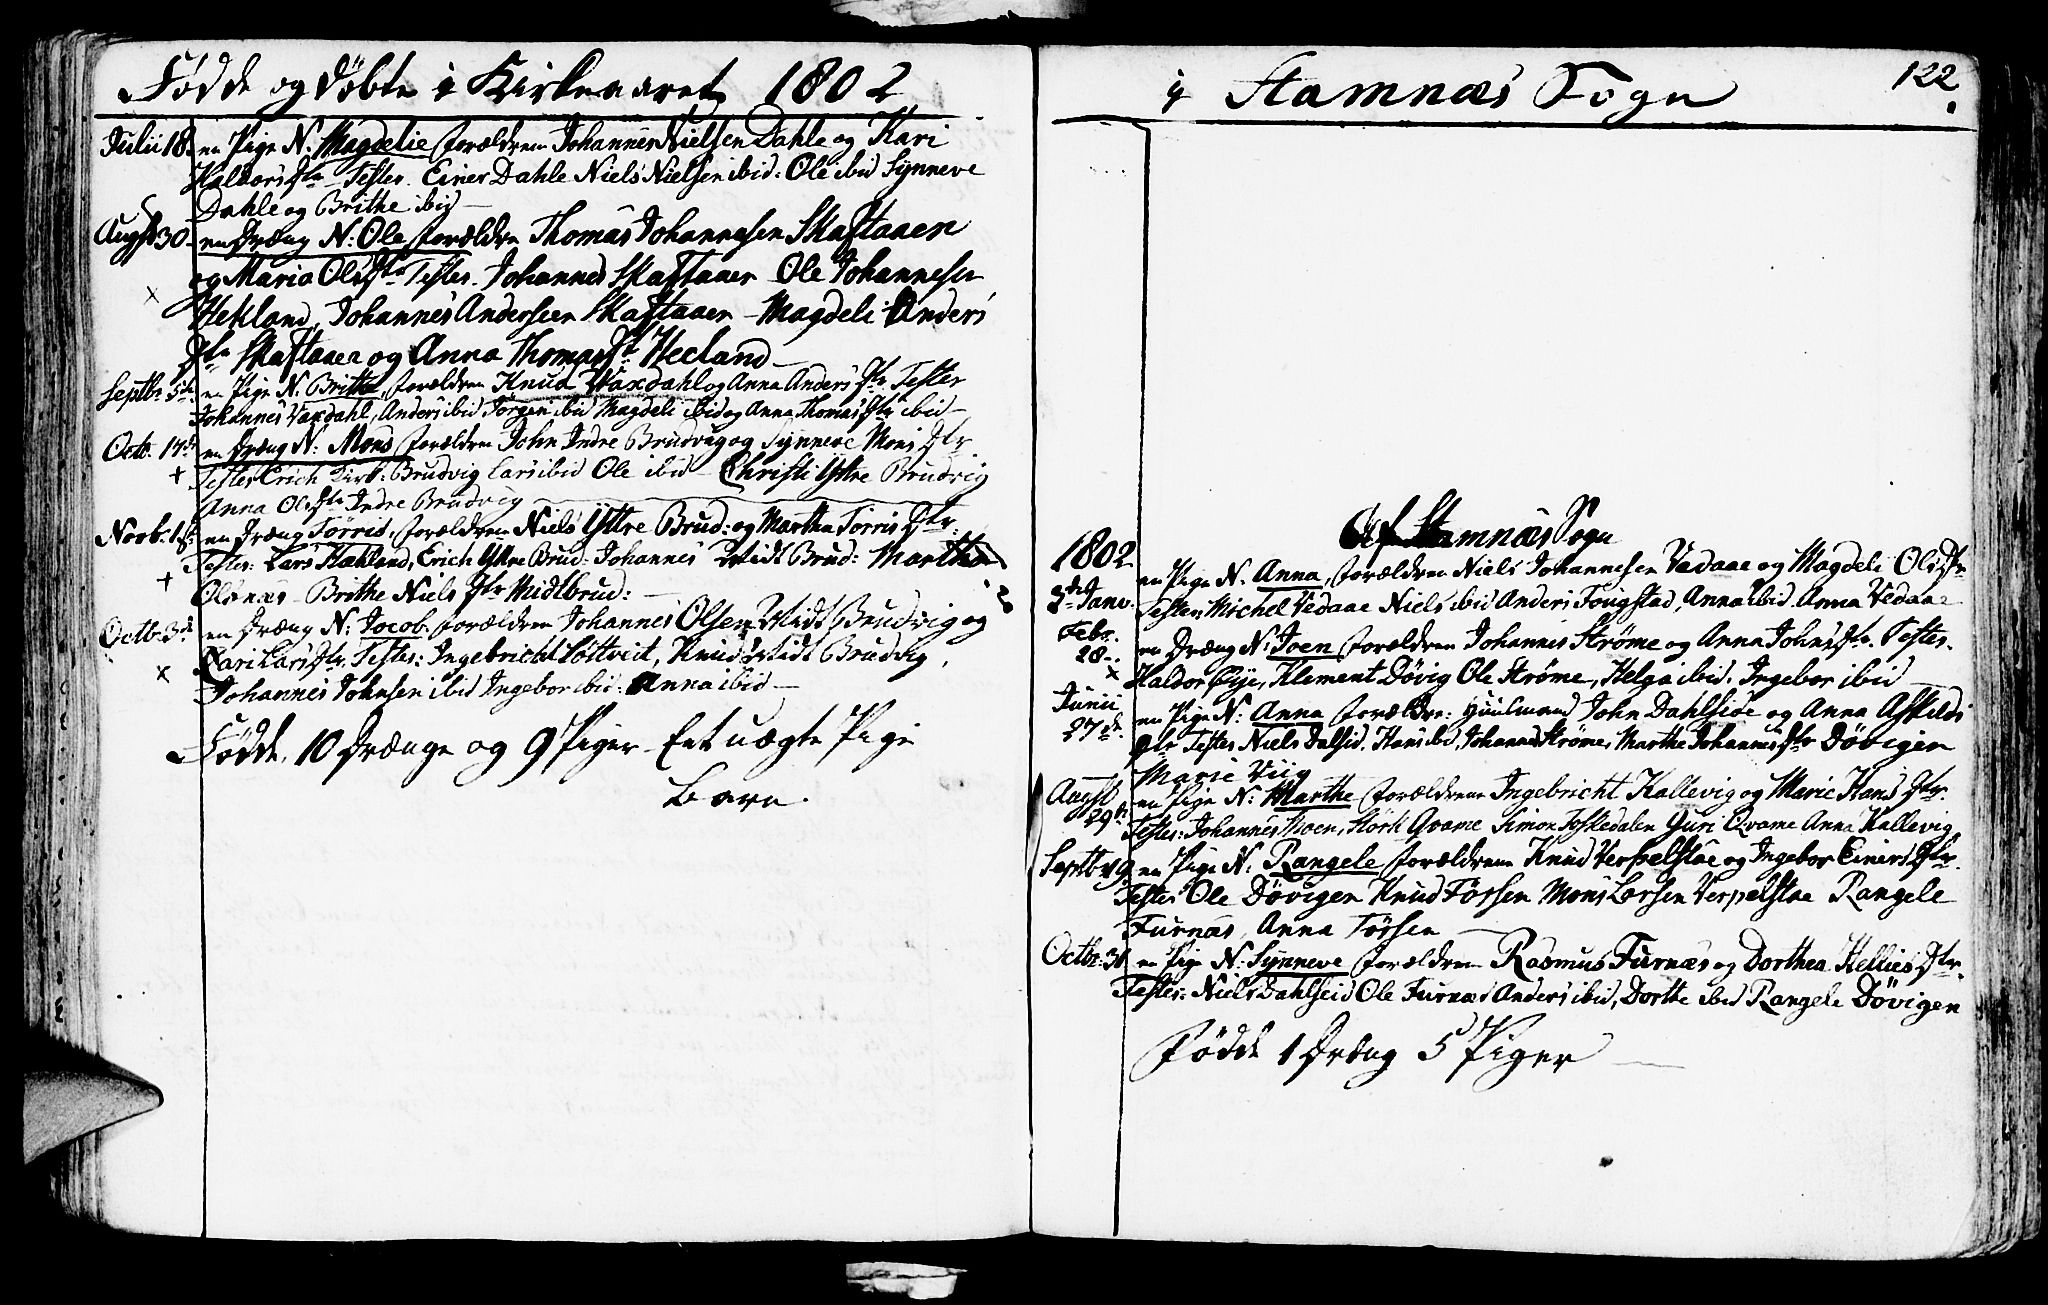 Fødde og døbte i Kirkeaaret 1802
Julii 18. en Pige N: Magdelie forældrene Johannes Nielsen Dahle og Kari
Haldors Dtr Testes. Einer Dahle Niels Nielsen ibid: Ole ibid Synneve
Dahle og Brithe ibid
Augst 30. en Dræng N: Ole forældre Thomas Johannesen Skaftaaen
og Maria Ols Dtr Testes. Johannes Skaftaaen Ole Johannesen
Hekland, Johannes Andersen Skaftaaen - Magdeli Anders
Dtr Skaftaaen og Anna Thomas Dtr Hecland
Septbr 5te en Pige N: Britha, forældrene Knud Vaxdahl og Anna Anders Dtr. Testes
Johannes Vaxdahl, Anders ibid Jørgen ibid Magdeli ibid og Anna Thomas Dtr ibid
Octb. 17de en Dræng N: Mons forældrene John Indre Brudvig og Synneve Mons Dtr
+ Testes Erich Brudvig Lars ibid Ole ibid - Christi Ystre Brudvig
Anna Ols Dtr Indre Brudvig
Novb. 1ste en Dræng Torris, forældrene Niels Ystre Brud: og Martha Torris Dtr.
Testes: Lars Hækland, Erich Ystre Brud: Johannes Midt Brud: Martha
+ Olsnæs - Brithe Niels Dtr Midtbrud:
Octbr 31 en Dræng N: Jocob. forældrene Johannes Olsen Midt Brudvig og
x Kari Lars Dtr. Testes: Ingebricht Løttveit, Knud Midt Brudvig,
Johannes Johnsen ibid Ingebor ibid: Anna ibid
Fødde, 10 Drænge og 9 Piger - Eet uægte Pige
Barn.
i Stamnæs Sogn 122
Af Stamnæs Sogn
1802
en Pige N. Anna, forældrene Niels Johannesen Vedaae og Magdeli Ols Dtr
Janv: Testes Michel Vedaae Niels ibid Anders Fougstad, Anna ibid. Anna Vedaae
Febr. 28. en Dræng N: Joen forældrene Johannes Strøme og Anna Johns Dtr. Testes.
x Haldor Eije, Klement Døvig Ole Strøme, Helga ibid. Ingebor ibid
Junii 27de en Pige N: Anna forældre: Huusmand John Dahlseie og Anna Askilds
Dtr Testes Niels Dalseid. Hans ibid, Johannes Strøme, Marthe Johannes Dtr Døvigen
Marie Viig
Augst 29de en Pige N: Marthe forældrene Ingebricht Kallevig og Marie Hans Dtr.
Testes: Johannes Moen, Størk Qvame Simon Toskedalen Guri Qvame Anna Kallevig
Septbr 19 en Pige N. Rangele forældrene Knud Verpelstae og Ingebor Einers Dtr
Testes Ole Døvigen Knud Førssen Mons Larsen Verpelstae Rangele
Furnæs, Anna Førsen
Octbr: 31 en Pige N: Synneve forældrene Rasmus Furnæs og Dorthea Hellies Dtr.
Testes: Niels Dahlseid Ole Furnæs Anders ibid, Dorthe ibid Rangele Døvigen
Fødde 1 Dræng 5 Piger